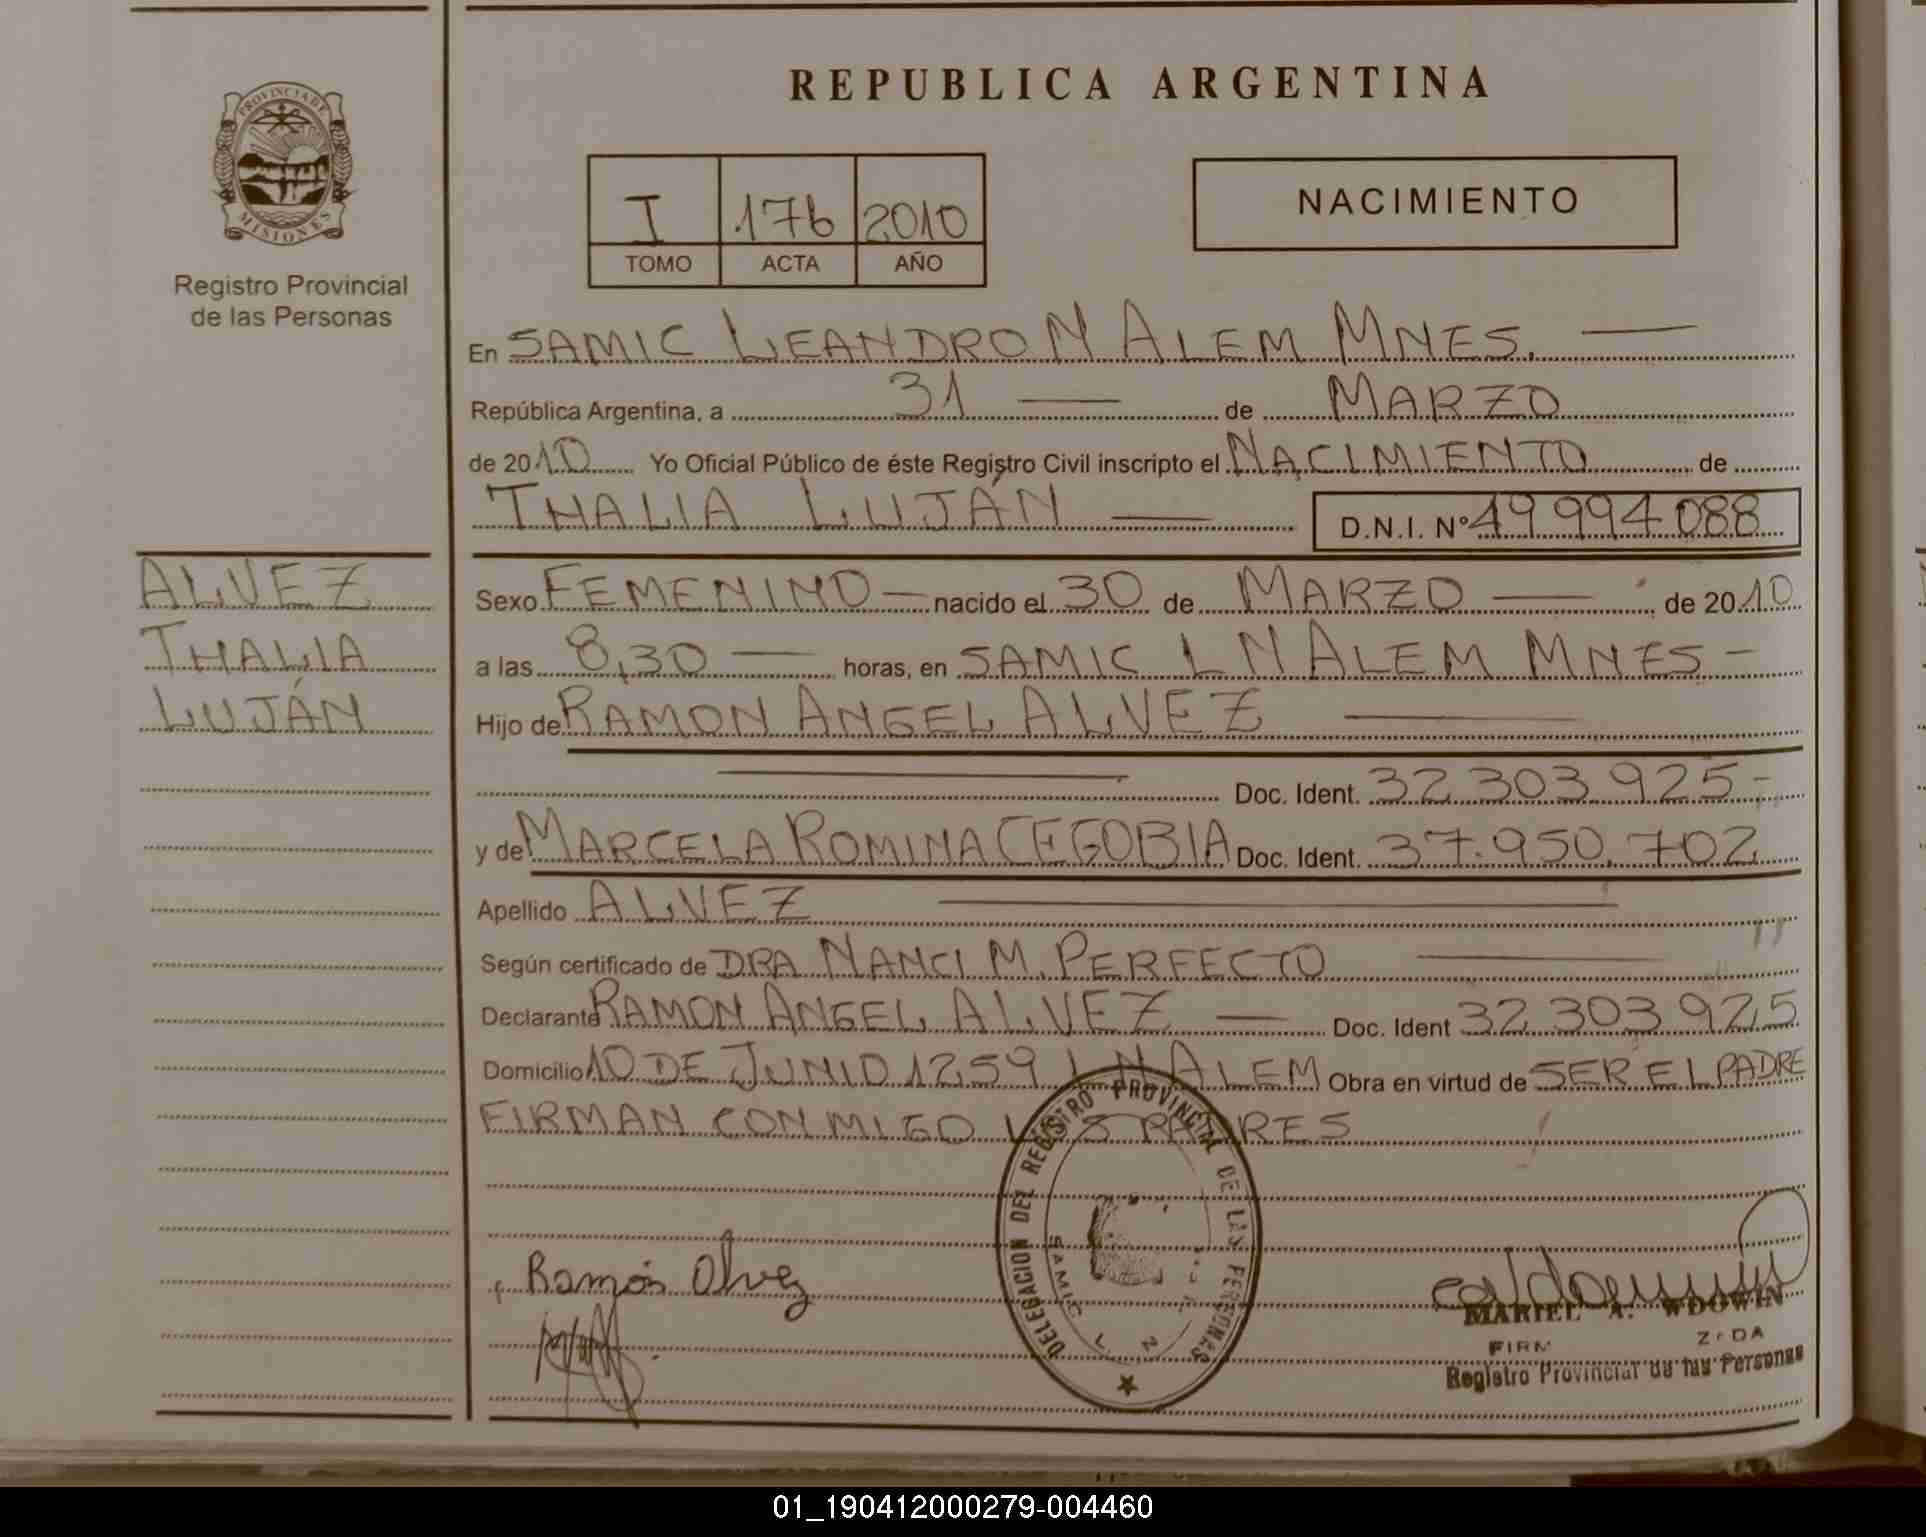 REPUBLICA ARGENTINA
PROVINCIA DE
MISIONES
Registro Provincial
de las Personas
I 176 2010
TOMO ACTA AÑO
NACIMIENTO
En SAMIC LEANDRO N ALEM MNES.
República Argentina, a 31 de MARZO
de 2010 Yo Oficial Público de éste Registro Civil inscripto el NACIMIENTO de
THALIA LUJÁN D.N.I. Nº 49 994 088
ALVEZ
THALIA
LUJÁN
Sexo FEMENINO nacido el 30 de MARZO de 2010
a las 8,30 horas, en SAMIC L N ALEM MNES
Hijo de RAMON ANGEL ALVEZ
Doc. Ident. 32 303 925
y de MARCELA ROMINA CEGOBIA Doc. Ident. 37.950.702
Apellido ALVEZ
Según certificado de DRA NANCI M. PERFECTO
Declarante RAMON ANGEL ALVEZ Doc. Ident 32 303 925
Domicilio 10 DE JUNIO 1259 L N ALEM Obra en virtud de SER EL PADRE
FIRMAN CONMIGO LOS PADRES
DELEGACION DEL REGISTRO PROVINCIAL DE LAS PERSONAS
SAMIC L. N.
Ramón Alvez
MARIEL A. WDOWIN
Registro Provincial de las Personas
01_190412000279-004460